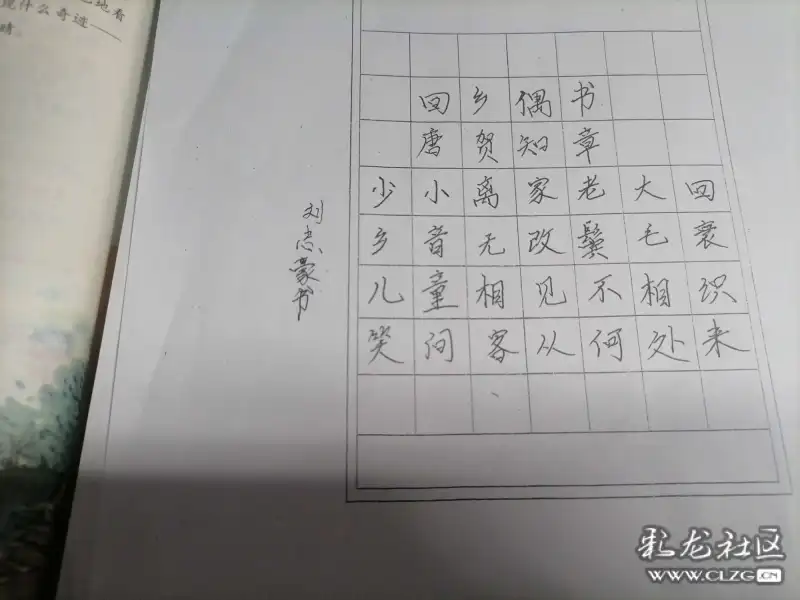 地看
什么奇迹——
睛。
回乡偶书
唐贺知章
少小离家老大回
乡音无改鬓毛衰
儿童相见不相识
笑问客从何处来
刘志豪书
彩龙社区
WWW.CLZG.CN